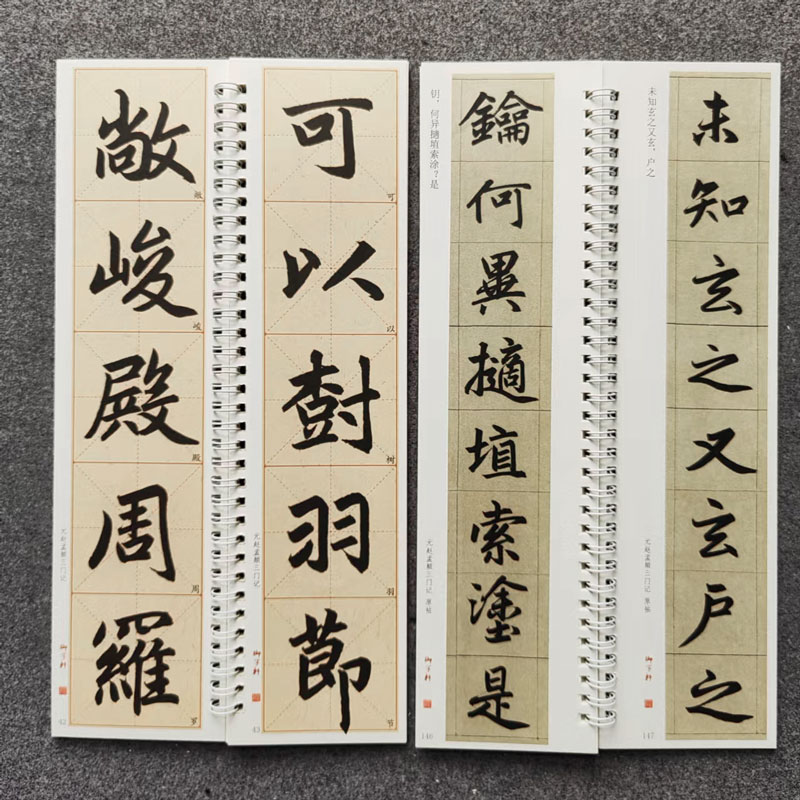 敞峻殿周羅
敞
峻
殿
周
罗
元赵孟頫三门记
御宝轩
42
可以樹羽節
可
以
树
羽
节
元赵孟頫三门记
御宝轩
43
鑰何異擿埴索塗是
钥，何异擿埴索涂？是
元赵孟頫三门记 原帖
御宝轩
146
未知玄之又玄户之
未知玄之又玄，户之
元赵孟頫三门记 原帖
御宝轩
147